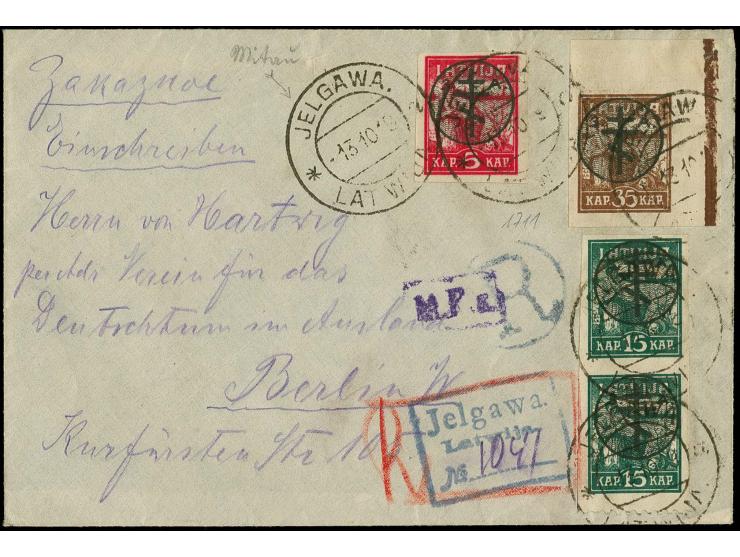 Mitau
Заказное
Einschreiben
Herrn von Hartwig
Verein für das
Deutschtum im Ausland
Berlin W
Kurfürsten Str 10
JELGAWA.
-13.10.19
LATWIJA
LATVIJA
KAP. 5 KAP.
LATVIJA
KAP. 35 KAP.
1711
LATVIJA
KAP. 15 KAP.
LATVIJA
KAP. 15 KAP.
R
R
Jelgawa.
Latwija
№ 1047